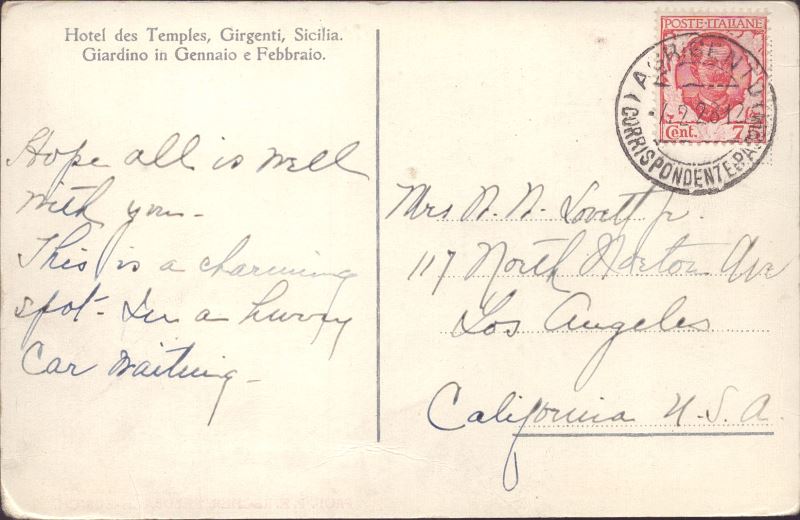 Hotel des Temples, Girgenti, Sicilia.
Giardino in Gennaio e Febbraio.
Hope all is well
with you -
This is a charming
spot - In a hurry
Car waiting -
POSTE ITALIANE
Cent. 7
AGRIGENTO
CORRISPONDENZE
Mrs N. N. Lovett Jr.
117 North Norton Ave
Los Angeles
California U.S.A.